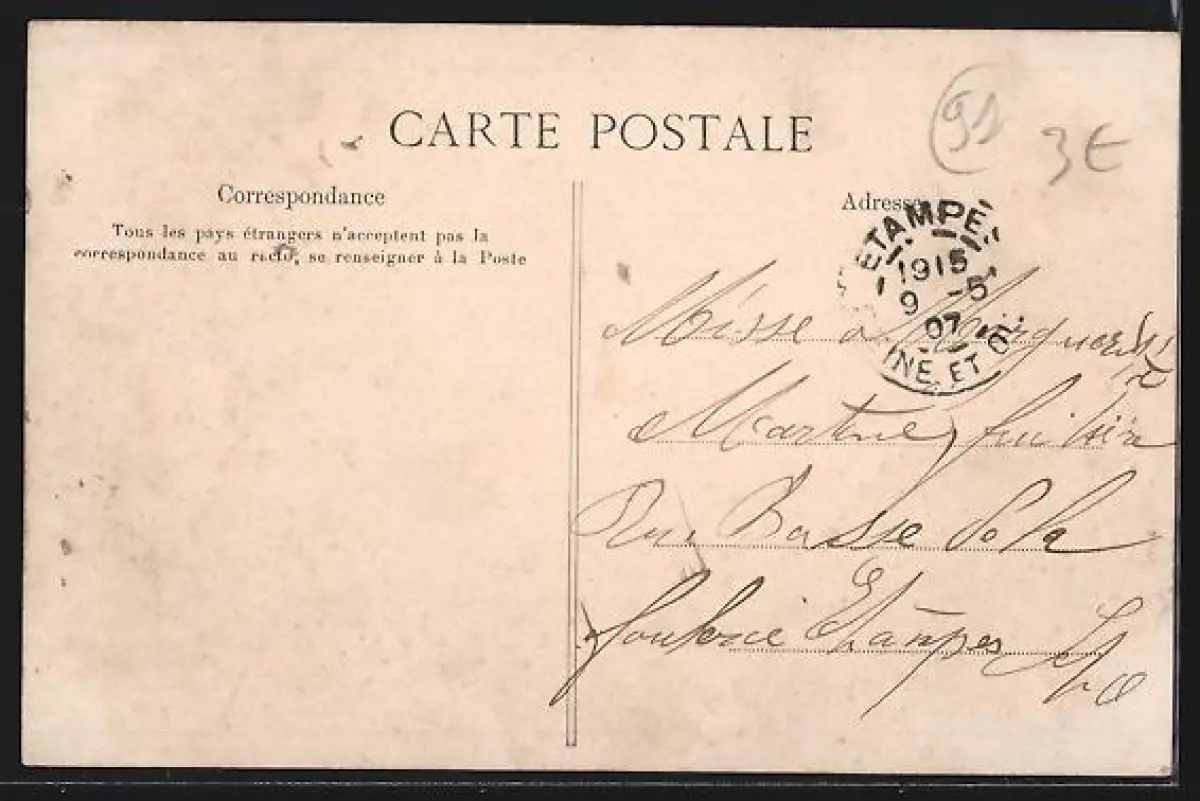 91
3€
CARTE POSTALE
Correspondance
Tous les pays étrangers n'acceptent pas la
correspondance au recto, se renseigner à la Poste
Adresse
ETAMPES
1915
9 -5
07
INE ET O
Misse
Rue Basse de la
foulerie Etampes S/O